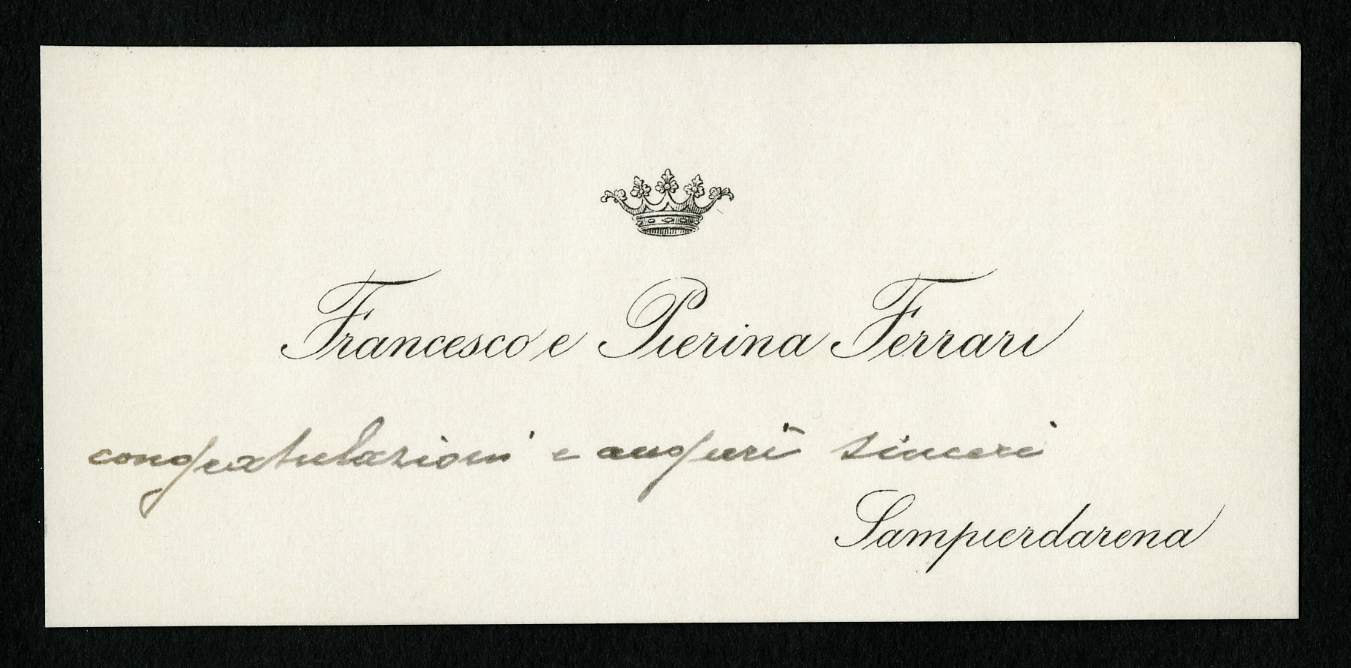 Francesco e Pierina Ferrari
congratulazioni e auguri sinceri
Sampierdarena